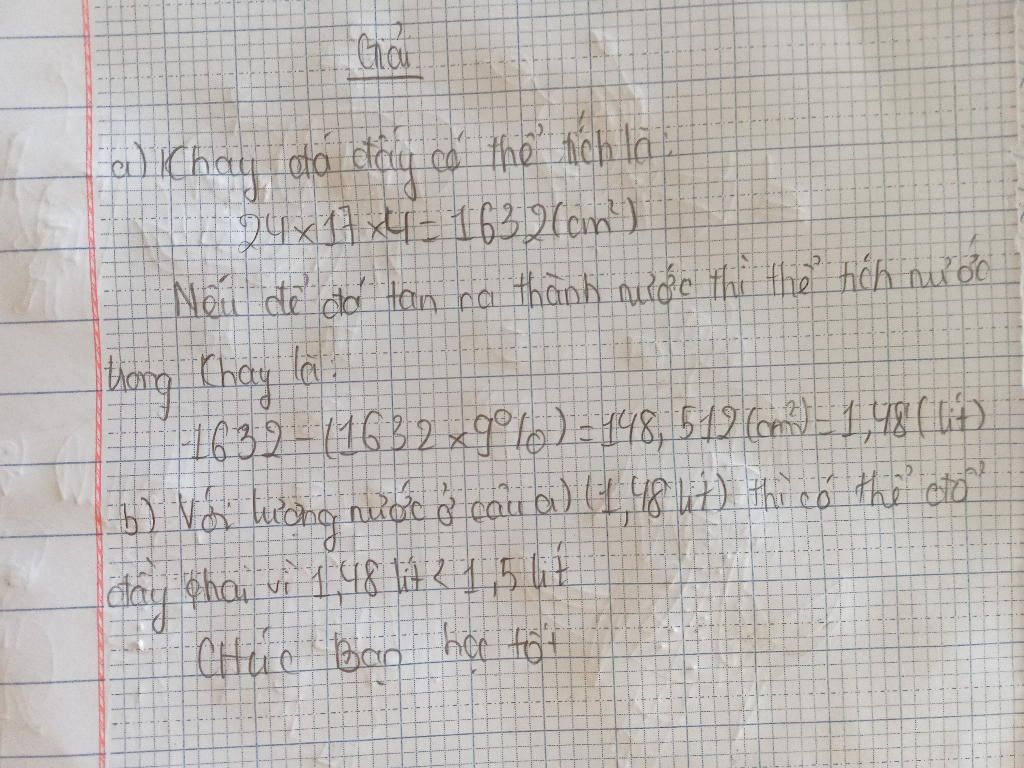 Giải
a) Khay đá đầy có thể tích là:
24 x 17 x 4 = 1632 (cm²)
Nếu để đá tan ra thành nước thì thể tích nước
trong khay là:
1632 - (1632 x 9%) = 148,512 (cm²) = 1,48 (lít)
b) Với lượng nước ở câu a) (1,48 lít) thì có thể đổ
đầy chai vì 1,48 lít < 1,5 lít
CHúc Bạn học tốt